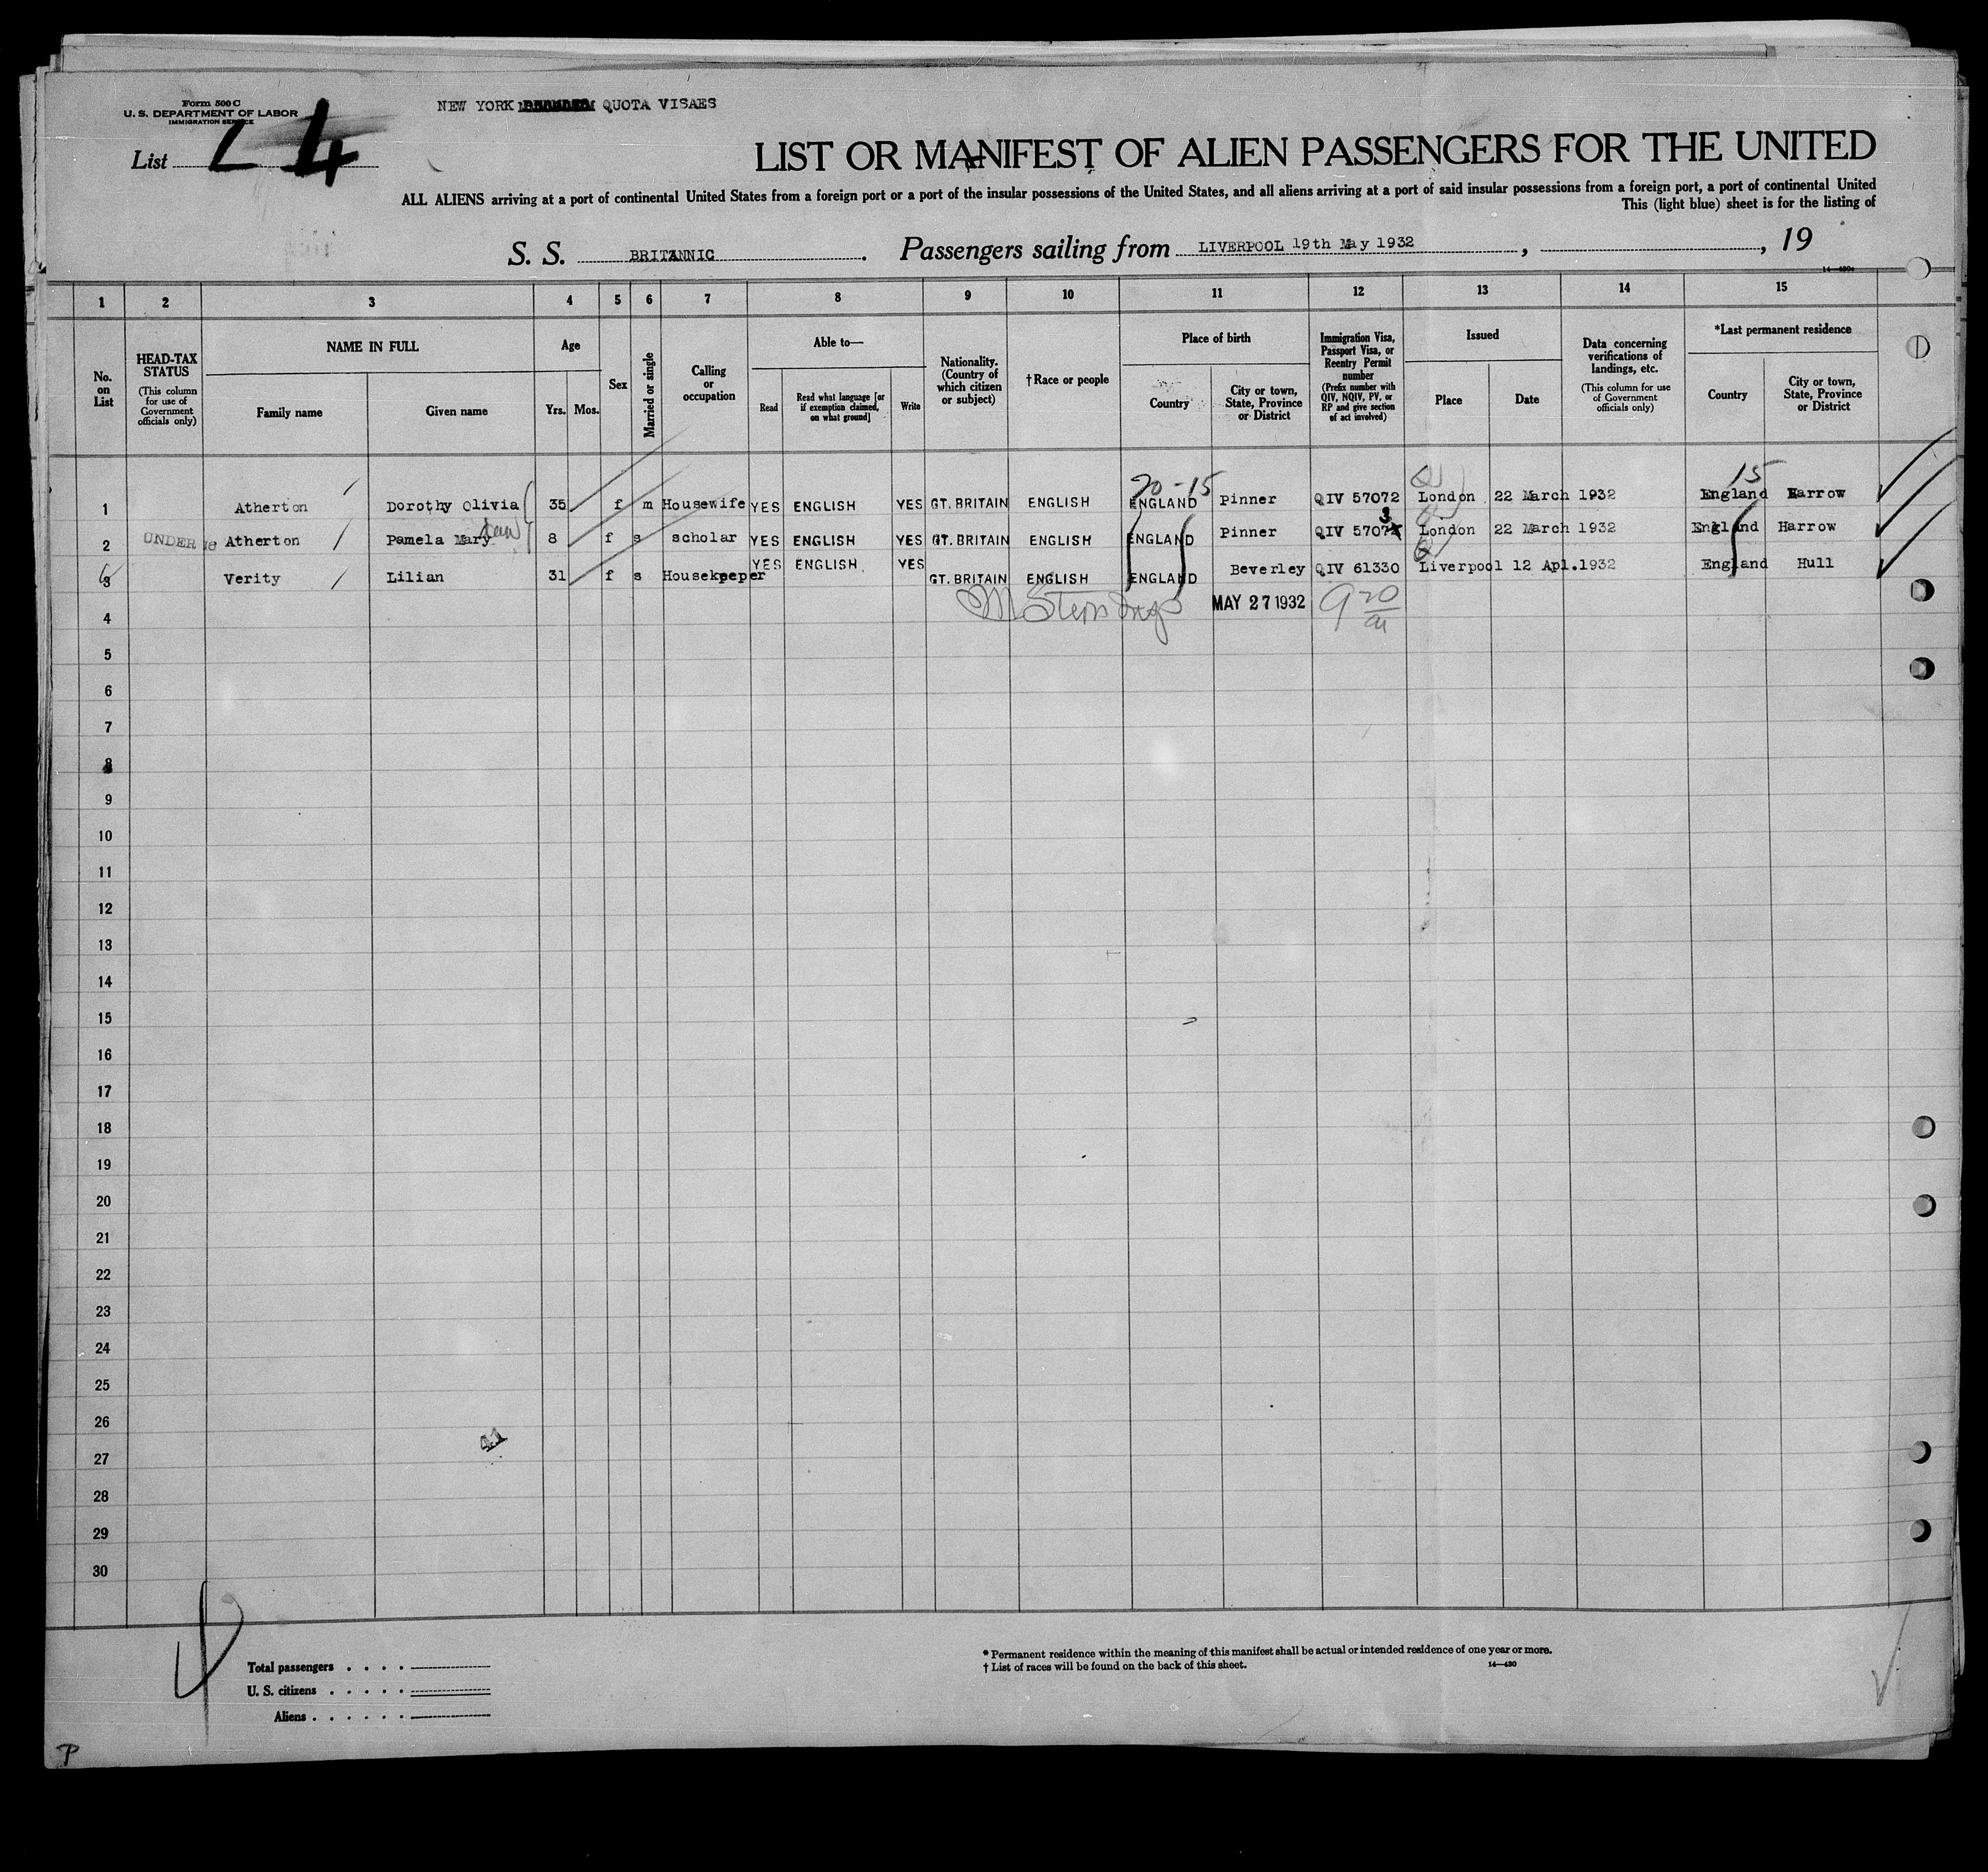 Form 500 C
U. S. DEPARTMENT OF LABOR
IMMIGRATION SERVICE
NEW YORK QUOTA VISAES
List L 4
LIST OR MANIFEST OF ALIEN PASSENGERS FOR THE UNITED
ALL ALIENS arriving at a port of continental United States from a foreign port or a port of the insular possessions of the United States, and all aliens arriving at a port of said insular possessions from a foreign port, a port of continental United
This (light blue) sheet is for the listing of
S. S. BRITANNIC. Passengers sailing from LIVERPOOL 19th May 1932, , 19
1 2 3 4 5 6 7 8 9 10 11 12 13 14 15
No. on List
HEAD-TAX STATUS (This column for use of Government officials only)
NAME IN FULL
Family name
Given name
Age
Yrs. Mos.
Sex
Married or single
Calling or occupation
Able to—
Read
Read what language [or if exemption claimed, on what ground]
Write
Nationality. (Country of which citizen or subject)
†Race or people
Place of birth
Country
City or town, State, Province or District
Immigration Visa, Passport Visa, or Reentry Permit number (Prefix number with QIV, NQIV, PV, or RP and give section of act involved)
Issued
Place
Date
Data concerning verifications of landings, etc. (This column for use of Government officials only)
*Last permanent residence
Country
City or town, State, Province or District
20-15 15
1 Atherton Dorothy Olivia 35 f m Housewife YES ENGLISH YES GT. BRITAIN ENGLISH ENGLAND Pinner QIV 57072 London 22 March 1932 England Harrow
2 UNDER 16 Atherton Pamela Mary 8 f s scholar YES ENGLISH YES GT. BRITAIN ENGLISH ENGLAND Pinner QIV 57073 London 22 March 1932 England Harrow
3 Verity Lilian 31 f s Housekeeper YES ENGLISH YES GT. BRITAIN ENGLISH ENGLAND Beverley QIV 61330 Liverpool 12 Apl.1932 England Hull
4 MAY 27 1932 9 20
5
6
7
8
9
10
11
12
13
14
15
16
17
18
19
20
21
22
23
24
25
26
27
28
29
30
Total passengers
U. S. citizens
Aliens
* Permanent residence within the meaning of this manifest shall be actual or intended residence of one year or more.
† List of races will be found on the back of this sheet.
14—430
P